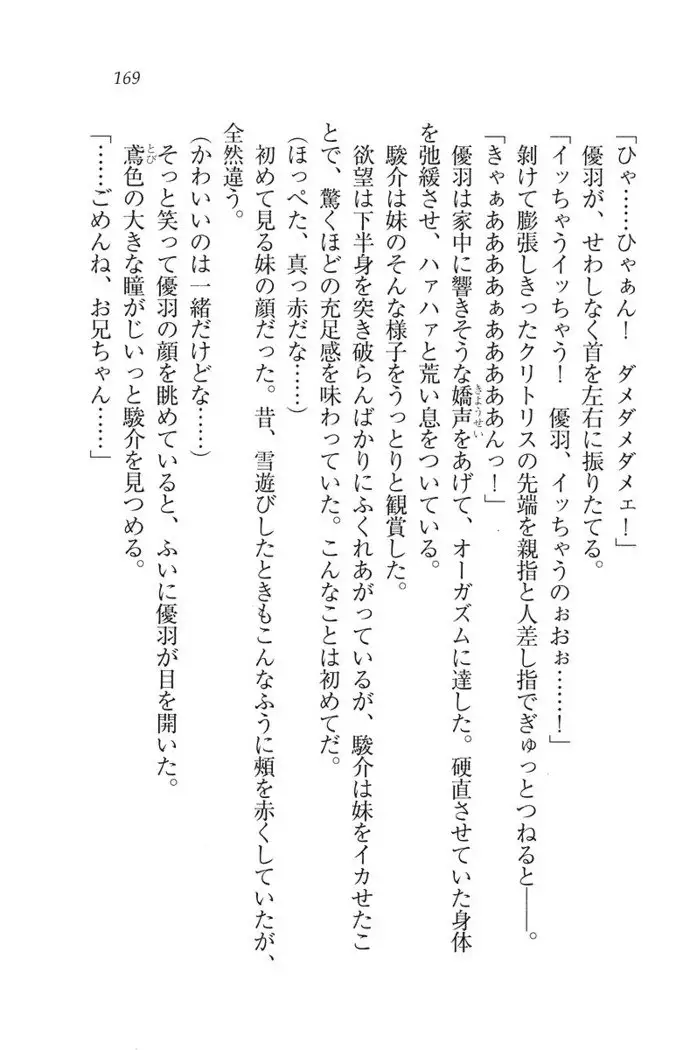 169
「ひゃ……ひゃぁん！　ダメダメダメェ！」
優羽が、せわしなく首を左右に振りたてる。
「イッちゃうイッちゃう！　優羽、イッちゃうのぉおぉ……！」
剝けて膨張しきったクリトリスの先端を親指と人差し指でぎゅっとつねると――。
「きゃぁああああぁああああんっ！」
優羽は家中に響きそうな嬌声をあげて、オーガズムに達した。硬直させていた身体
を弛緩させ、ハァハァと荒い息をついている。
駿介は妹のそんな様子をうっとりと観賞した。
欲望は下半身を突き破らんばかりにふくれあがっているが、駿介は妹をイカせたこ
とで、驚くほどの充足感を味わっていた。こんなことは初めてだ。
（ほっぺた、真っ赤だな……）
初めて見る妹の顔だった。昔、雪遊びしたときもこんなふうに頰を赤くしていたが、
全然違う。
（かわいいのは一緒だけどな……）
そっと笑って優羽の顔を眺めていると、ふいに優羽が目を開いた。
鳶色の大きな瞳がじいっと駿介を見つめる。
「……ごめんね、お兄ちゃん……」